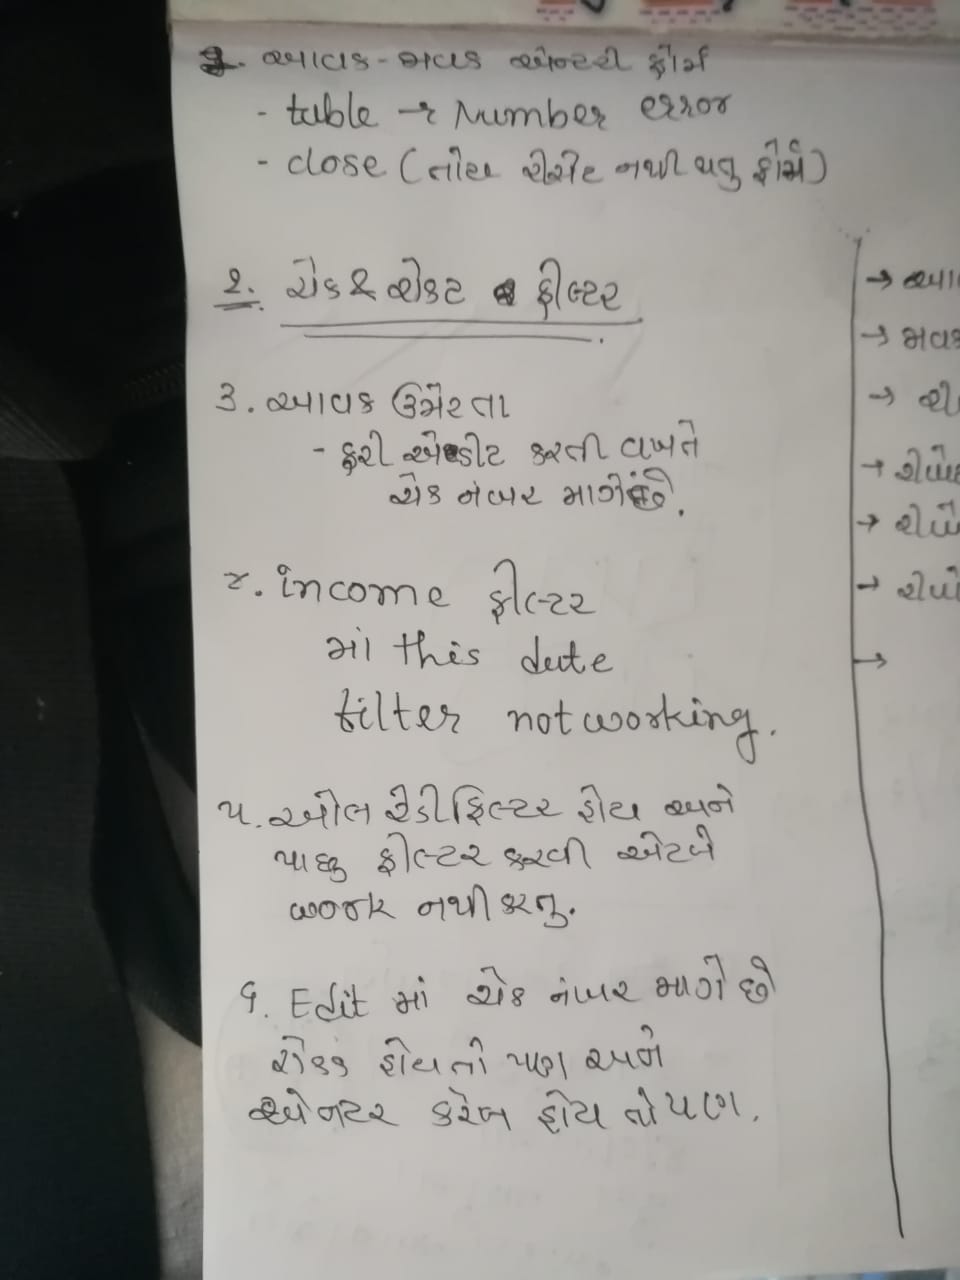 ૧. આવક-જાવક એન્ટરી ફોર્મ
- table → Number error
- close (તોય રીસેટ નથી થતુ ફોર્મ)
૨. ચેક & રોકટ ફીલ્ટર
૩. આવક ઉમેરતા
- ફરી એડીટ કરતી વખતે
ચેક નંબર માગે છે.
૪. income ફીલ્ટર
માં this date
filter not working.
૫. ઓલ રેડી ફિલ્ટર હોય અને
પાછુ ફીલ્ટર કરવી એટલે
work નથી કરતુ.
૬. Edit માં ચેક નંબર માગે છે
રોકડ હોય તો પણ અને
એન્ટર કરેલ હોય તો પણ.
→
→
→
→
→
→
→